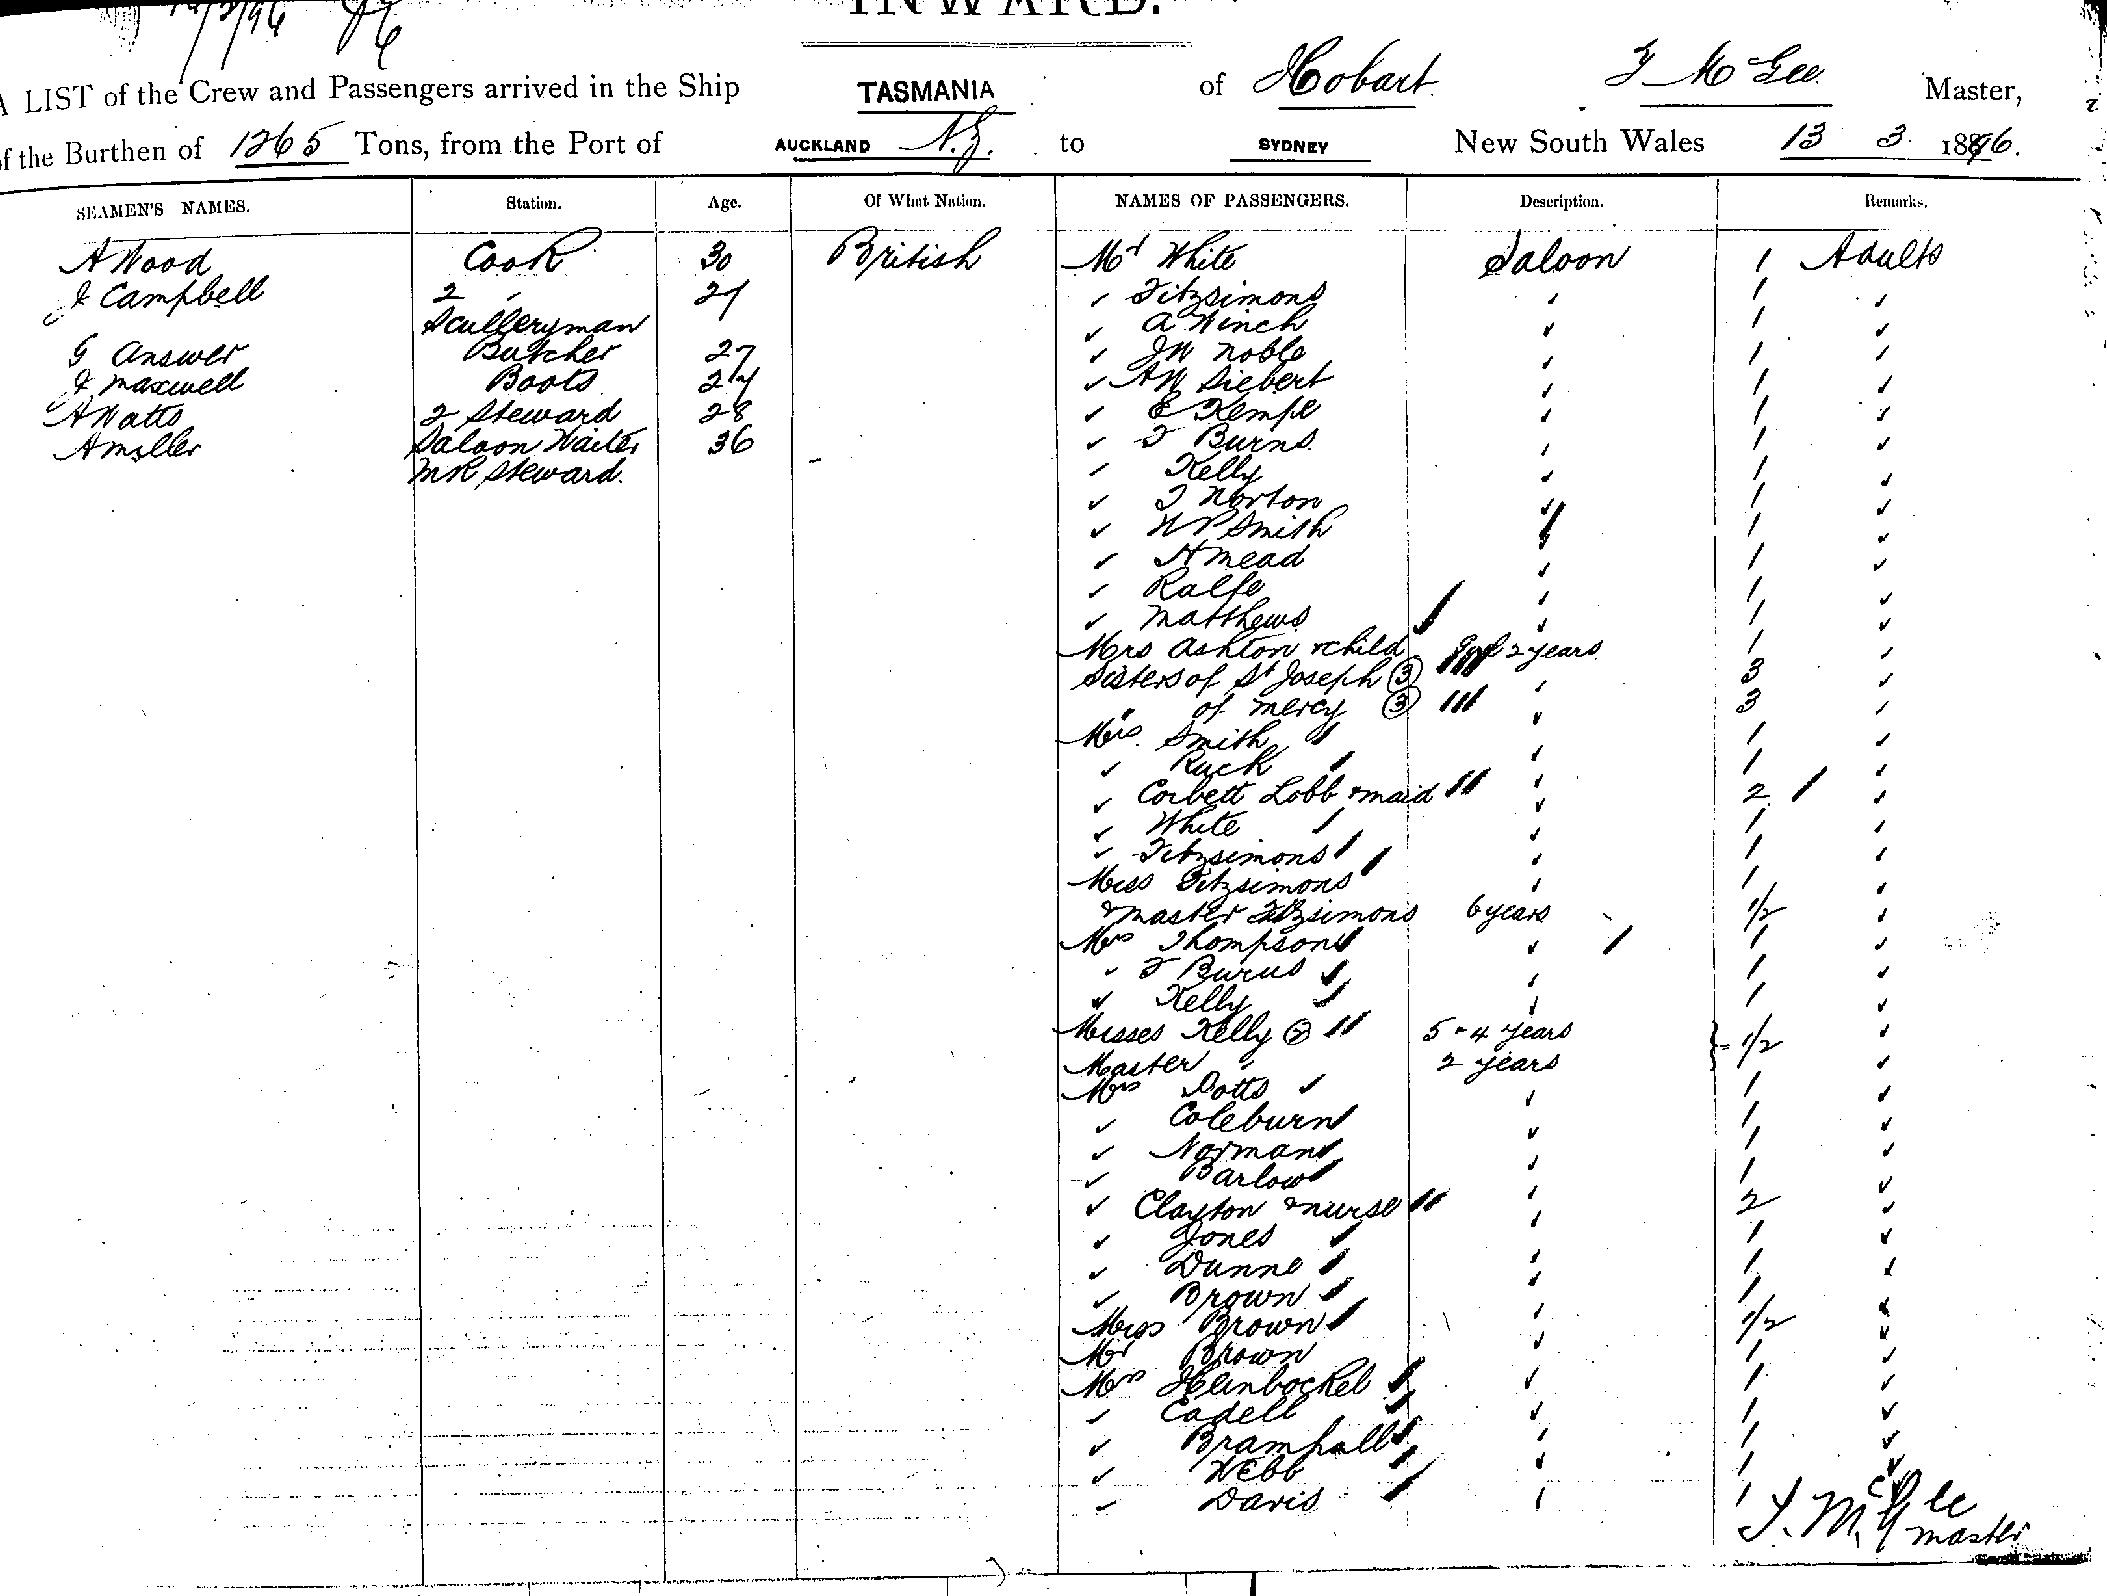 12/3/96
INWARD.
A LIST of the Crew and Passengers arrived in the Ship TASMANIA of Hobart T McGee Master,
of the Burthen of 1265 Tons, from the Port of AUCKLAND N.Z. to SYDNEY New South Wales 13 3. 1896.
SEAMEN'S NAMES. Station. Age. Of What Nation. NAMES OF PASSENGERS. Description. Remarks.
A Wood Cook 30 British Mr White Saloon 1 Adults
J Campbell 2 " 21 " Fitzsimons " 1 "
Sculleryman " A Winch " 1 "
G Answer Butcher 27 " JW Noble " 1 "
J Maxwell Boots 24 " AW Siebert " 1 "
A Watts 2 Steward 28 " E Kempe " 1 "
A Miller Saloon Waiter 36 " T Burns " 1 "
MR Steward. " Kelly " 1 "
" T Norton " 1 "
" W P Smith " 1 "
" H Mead " 1 "
" Ralfe " 1 "
" Matthews " 1 "
Mrs Ashton & child 2 years 1 "
Sisters of St Joseph 3 " 3 "
" of Mercy 3 " 3 "
Mrs. Smith " 1 "
" Ruck " 1 "
" Corbett Lobb & maid " 2 "
" White " 1 "
" Fitzsimons " 1 "
Miss Fitzsimons " 1 "
& Master Fitzsimons 6 years 1/2 "
Mrs Thompson " 1 "
" T Burns " 1 "
" Kelly " 1 "
Misses Kelly 2 5 - 4 years } 1/2 "
Master " 2 years
Mrs Potts " 1 "
" Coleburn " 1 "
" Norman " 1 "
" Barlow " 1 "
" Clayton & nurse " 2 "
" Jones " 1 "
" Dunne " 1 "
" Brown " 1 "
Miss Brown " 1/2 "
Mr Brown " 1 "
Mrs Heinbockel " 1 "
" Cadell " 1 "
" Bramhall " 1 "
" Webb " 1 "
" Davis " 1
T. McGee
master